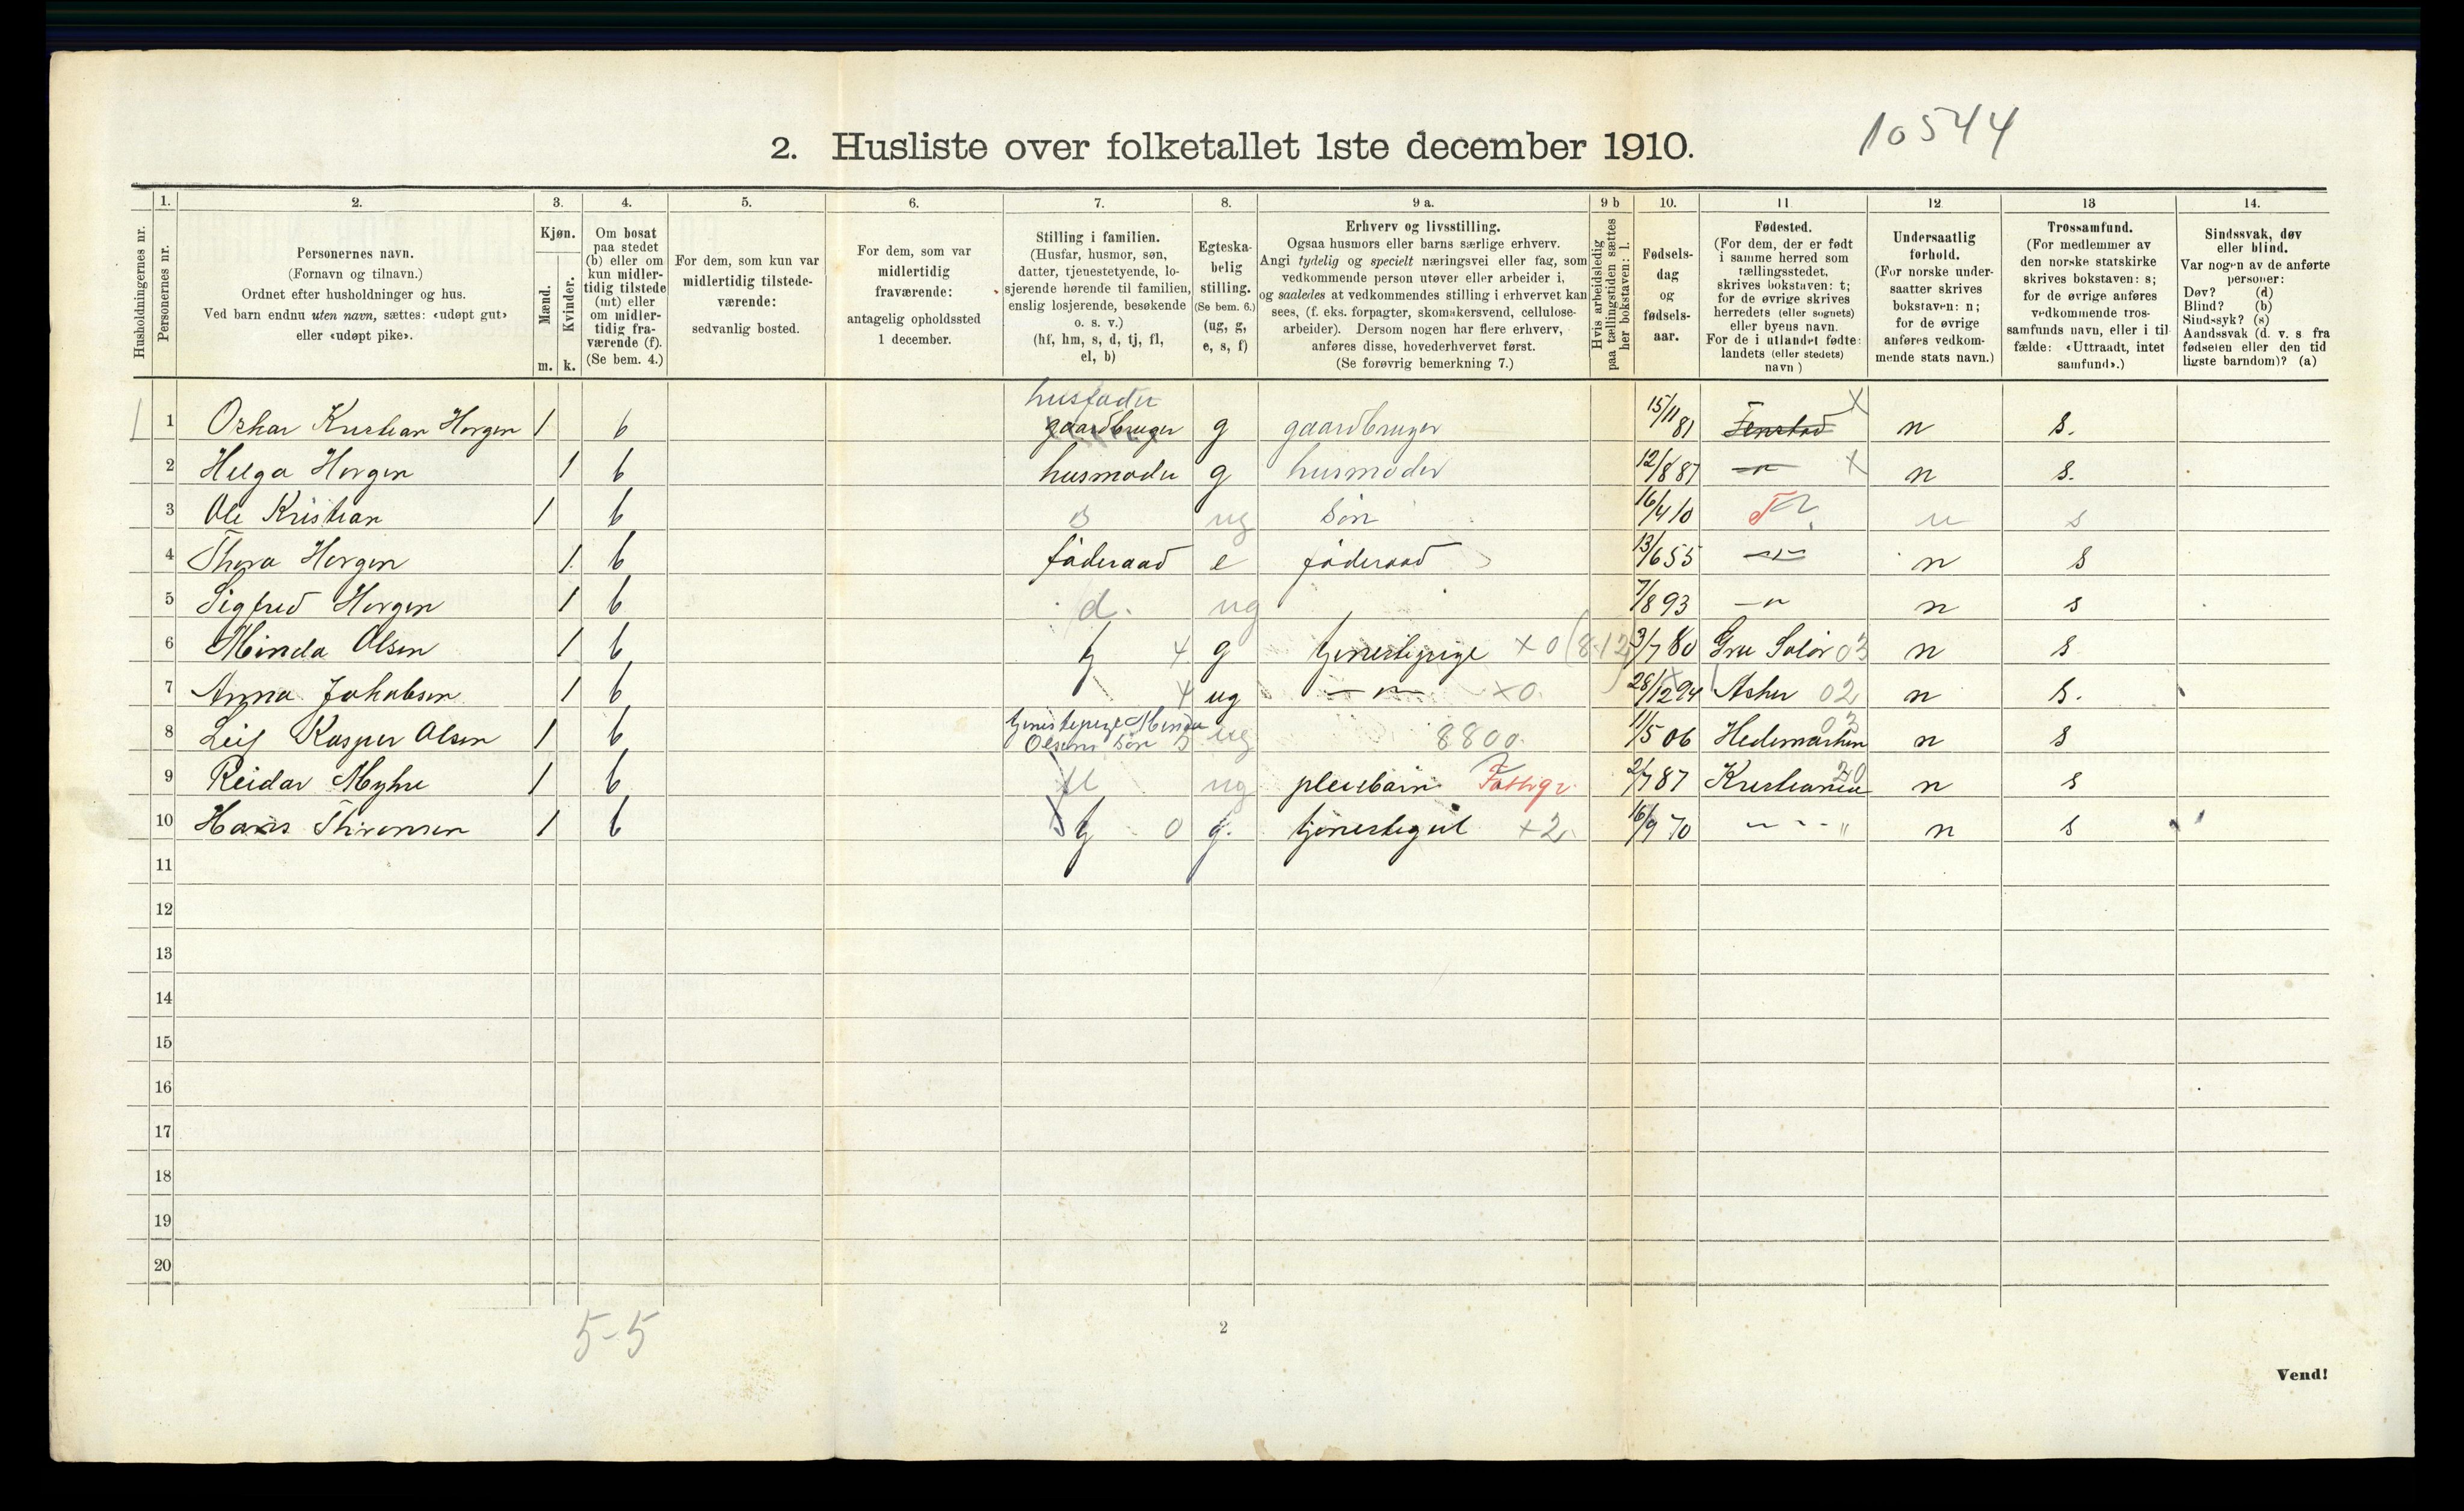 10544
2. Husliste over folketallet 1ste december 1910.
Husholdningernes nr.
1. Personernes nr.
2.
Personernes navn.
(Fornavn og tilnavn.)
Ordnet efter husholdninger og hus.
Ved barn endnu uten navn, sættes: «udøpt gut»
eller «udøpt pike».
3.
Kjøn.
Mænd.
Kvinder.
m. k.
4.
Om bosat
paa stedet
(b) eller om
kun midler-
tidig tilstede
(mt) eller
om midler-
tidig fra-
værende (f).
(Se bem. 4.)
5.
For dem, som kun var
midlertidig tilstede-
værende:
sedvanlig bosted.
6.
For dem, som var
midlertidig
fraværende:
antagelig opholdssted
1 december.
7.
Stilling i familien.
(Husfar, husmor, søn,
datter, tjenestetyende, lo-
sjerende hørende til familien,
enslig losjerende, besøkende
o. s. v.)
(hf, hm, s, d, tj, fl,
el, b)
8.
Egteska-
belig
stilling.
(Se bem. 6.)
(ug, g,
e, s, f)
9 a.
Erhverv og livsstilling.
Ogsaa husmors eller barns særlige erhverv.
Angi tydelig og specielt næringsvei eller fag, som
vedkommende person utøver eller arbeider i,
og saaledes at vedkommendes stilling i erhvervet kan
sees, (f. eks. forpagter, skomakersvend, cellulose-
arbeider). Dersom nogen har flere erhverv,
anføres disse, hovederhvervet først.
(Se forøvrig bemerkning 7.)
9 b
Hvis arbeidsledig
paa tællingstiden sættes
her bokstaven: l.
10.
Fødsels-
dag
og
fødsels-
aar.
11.
Fødested.
(For dem, der er født
i samme herred som
tællingsstedet,
skrives bokstaven: t;
for de øvrige skrives
herredets (eller sognets)
eller byens navn.
For de i utlandet fødte:
landets (eller stedets)
navn )
12
Undersaatlig
forhold.
(For norske under-
saatter skrives
bokstaven: n;
for de øvrige
anføres vedkom-
mende stats navn.)
13
Trossamfund.
(For medlemmer av
den norske statskirke
skrives bokstaven: s;
for de øvrige anføres
vedkommende tros-
samfunds navn, eller i til-
fælde: «Uttraadt, intet
samfund».)
14.
Sindssvak, døv
eller blind.
Var nogen av de anførte
personer:
Døv? (d)
Blind? (b)
Sindssyk? (s)
Aandssvak (d. v. s fra
fødselen eller den tid
ligste barndom)? (a)
husfader
1 1 Oskar Kristian Horgen 1 b gaardbruger g gaardbruger 15/11 81 Fenstad X n s.
2 Helga Horgen 1 b husmoder g husmoder 12/8 87 — " — X n s.
3 Ole Kristian 1 b s ug søn 16/4 10 T n s
4 Thora Horgen 1 b føderaad e føderaad 13/6 55 — " — n s
5 Sigfrid Horgen 1 b d. ug 7/8 93 — " n s
6 Minda Olsen 1 b tj 4 g tjenestepige x 0 (8.12) 3/7 80 Grue Solør 03 n s
7 Anna Jakobsen 1 b 4 ug — " — x0 28/12 94 Asker 02 n s.
8 Leif Kasper Olsen 1 b tjenestepige Minda Olsens søn s ug 8800 11/5 06 Hedemarken 03 n s
9 Reidar Myhre 1 b fl ug pleiebarn Fattigv. 2/7 87 Kristiania 20 n s
10 Hans 1 b tj 0 g. tjenestegut x2 16/9 70 — " — " n s
11
12
13
14
15
16
17
18
19
20
5-5
2
Vend!